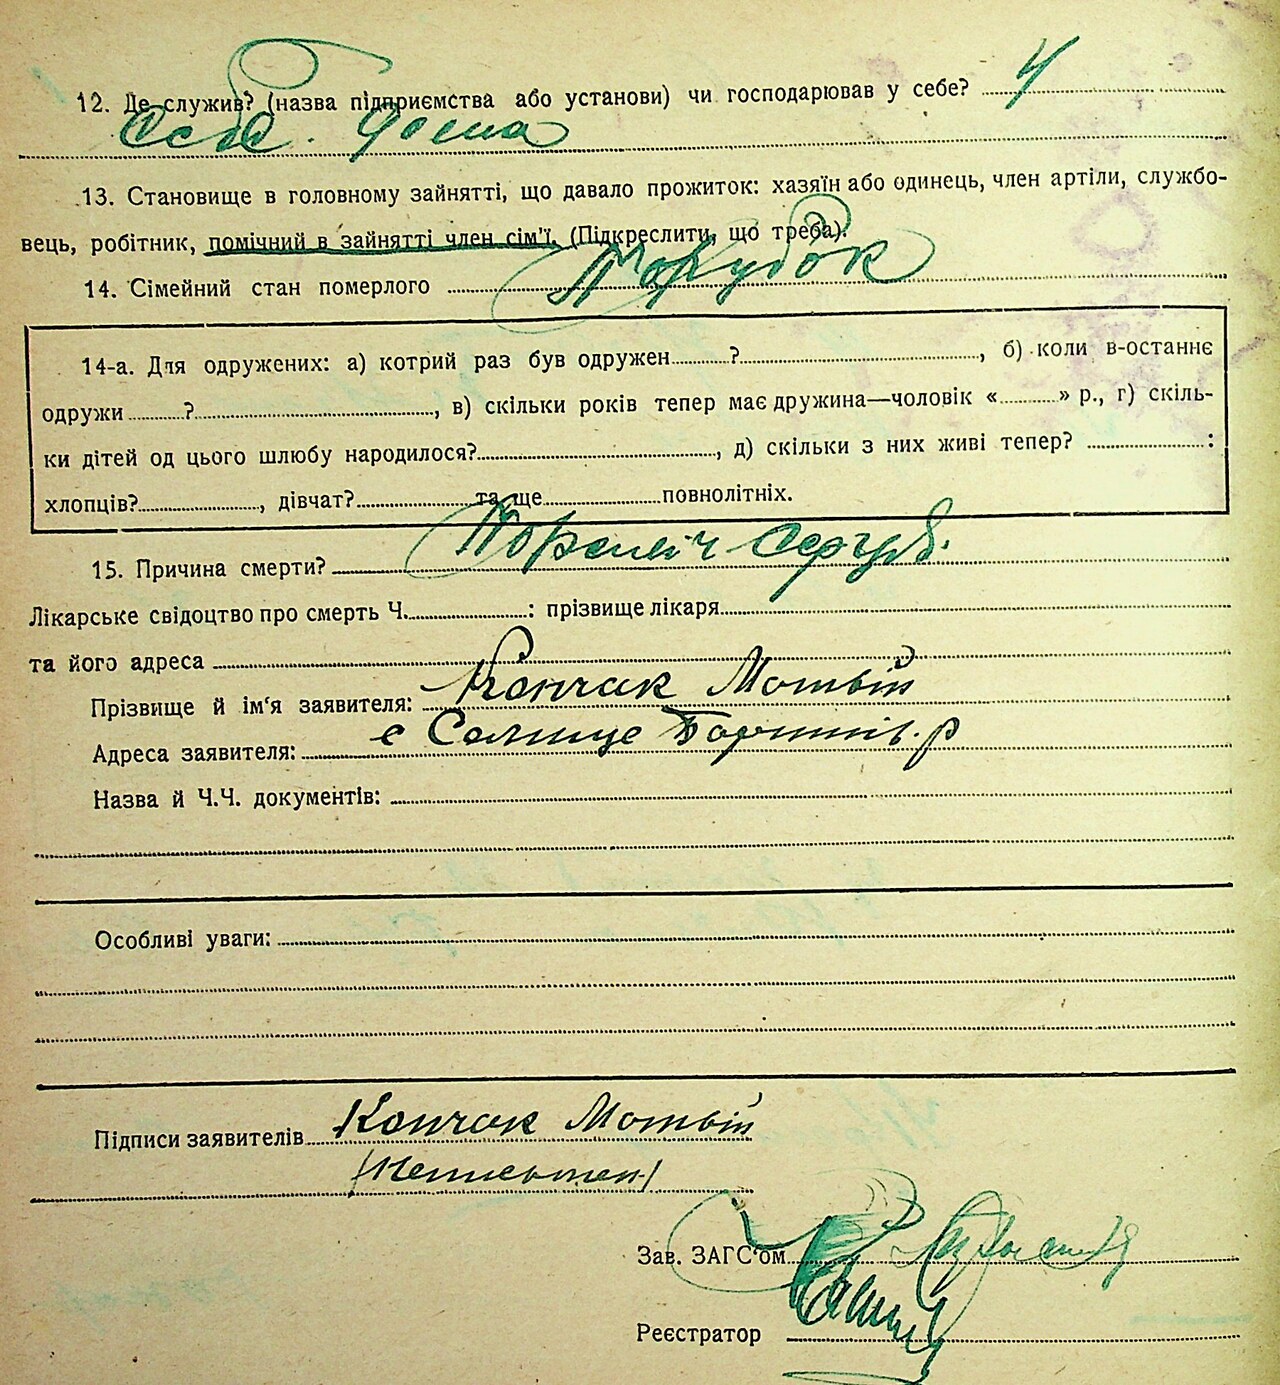 12. Де служив? (назва підприємства або установи) чи господарював у себе? У
себе дома
13. Становище в головному зайнятті, що давало прожиток: хазяїн або одинець, член артіли, службо-
вець, робітник, помічний в зайнятті член сім'ї. (Підкреслити, що треба).
14. Сімейний стан померлого Парубок
14-а. Для одружених: а) котрий раз був одружен ? , б) коли в-останнє
одружи ? , в) скільки років тепер має дружина—чоловік « » р., г) скіль-
ки дітей од цього шлюбу народилося? , д) скільки з них живі тепер? :
хлопців? , дівчат? та ще повнолітніх.
15. Причина смерти?
Лікарське свідоцтво про смерть Ч. : прізвище лікаря
та його адреса
Прізвище й ім'я заявителя: Кончак Мотвій
Адреса заявителя: с
Назва й Ч.Ч. документів:
Особливі уваги:
Підписи заявителів Кончак Мотвій
Зав. ЗАГС'ом
Реєстратор